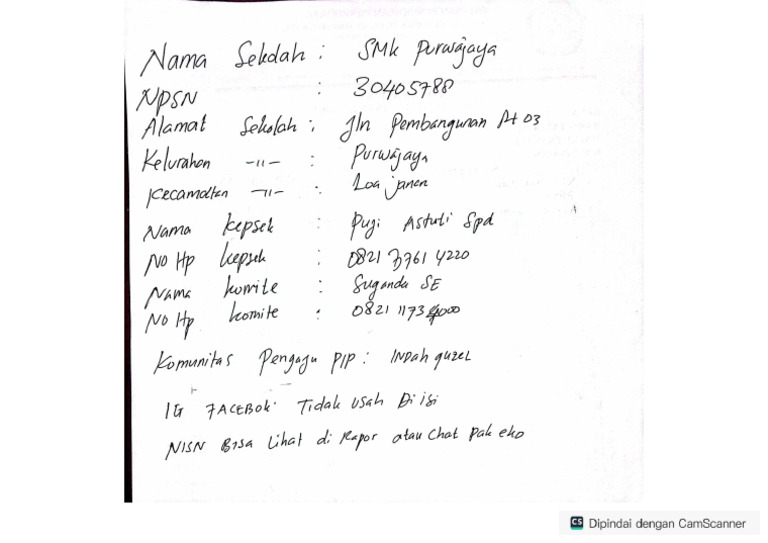 Nama Sekolah : SMK Purwajaya
NPSN : 30405788
Alamat Sekolah : Jln Pembangunan Rt 03
Kelurahan -11- : Purwajaya
Kecamatan -11- : Loa janan
Nama Kepsek : Puji Astuti Spd
No Hp Kepsek : 0821 3761 4220
Nama Komite : Suganda SE
No Hp Komite : 0821 1173 000
Komunitas Pengaju PIP : INDah
IG FACEBOK : Tidak Usah Di isi
NISN Bisa Lihat di Rapor atau Chat Pak eko
CS Dipindai dengan CamScanner